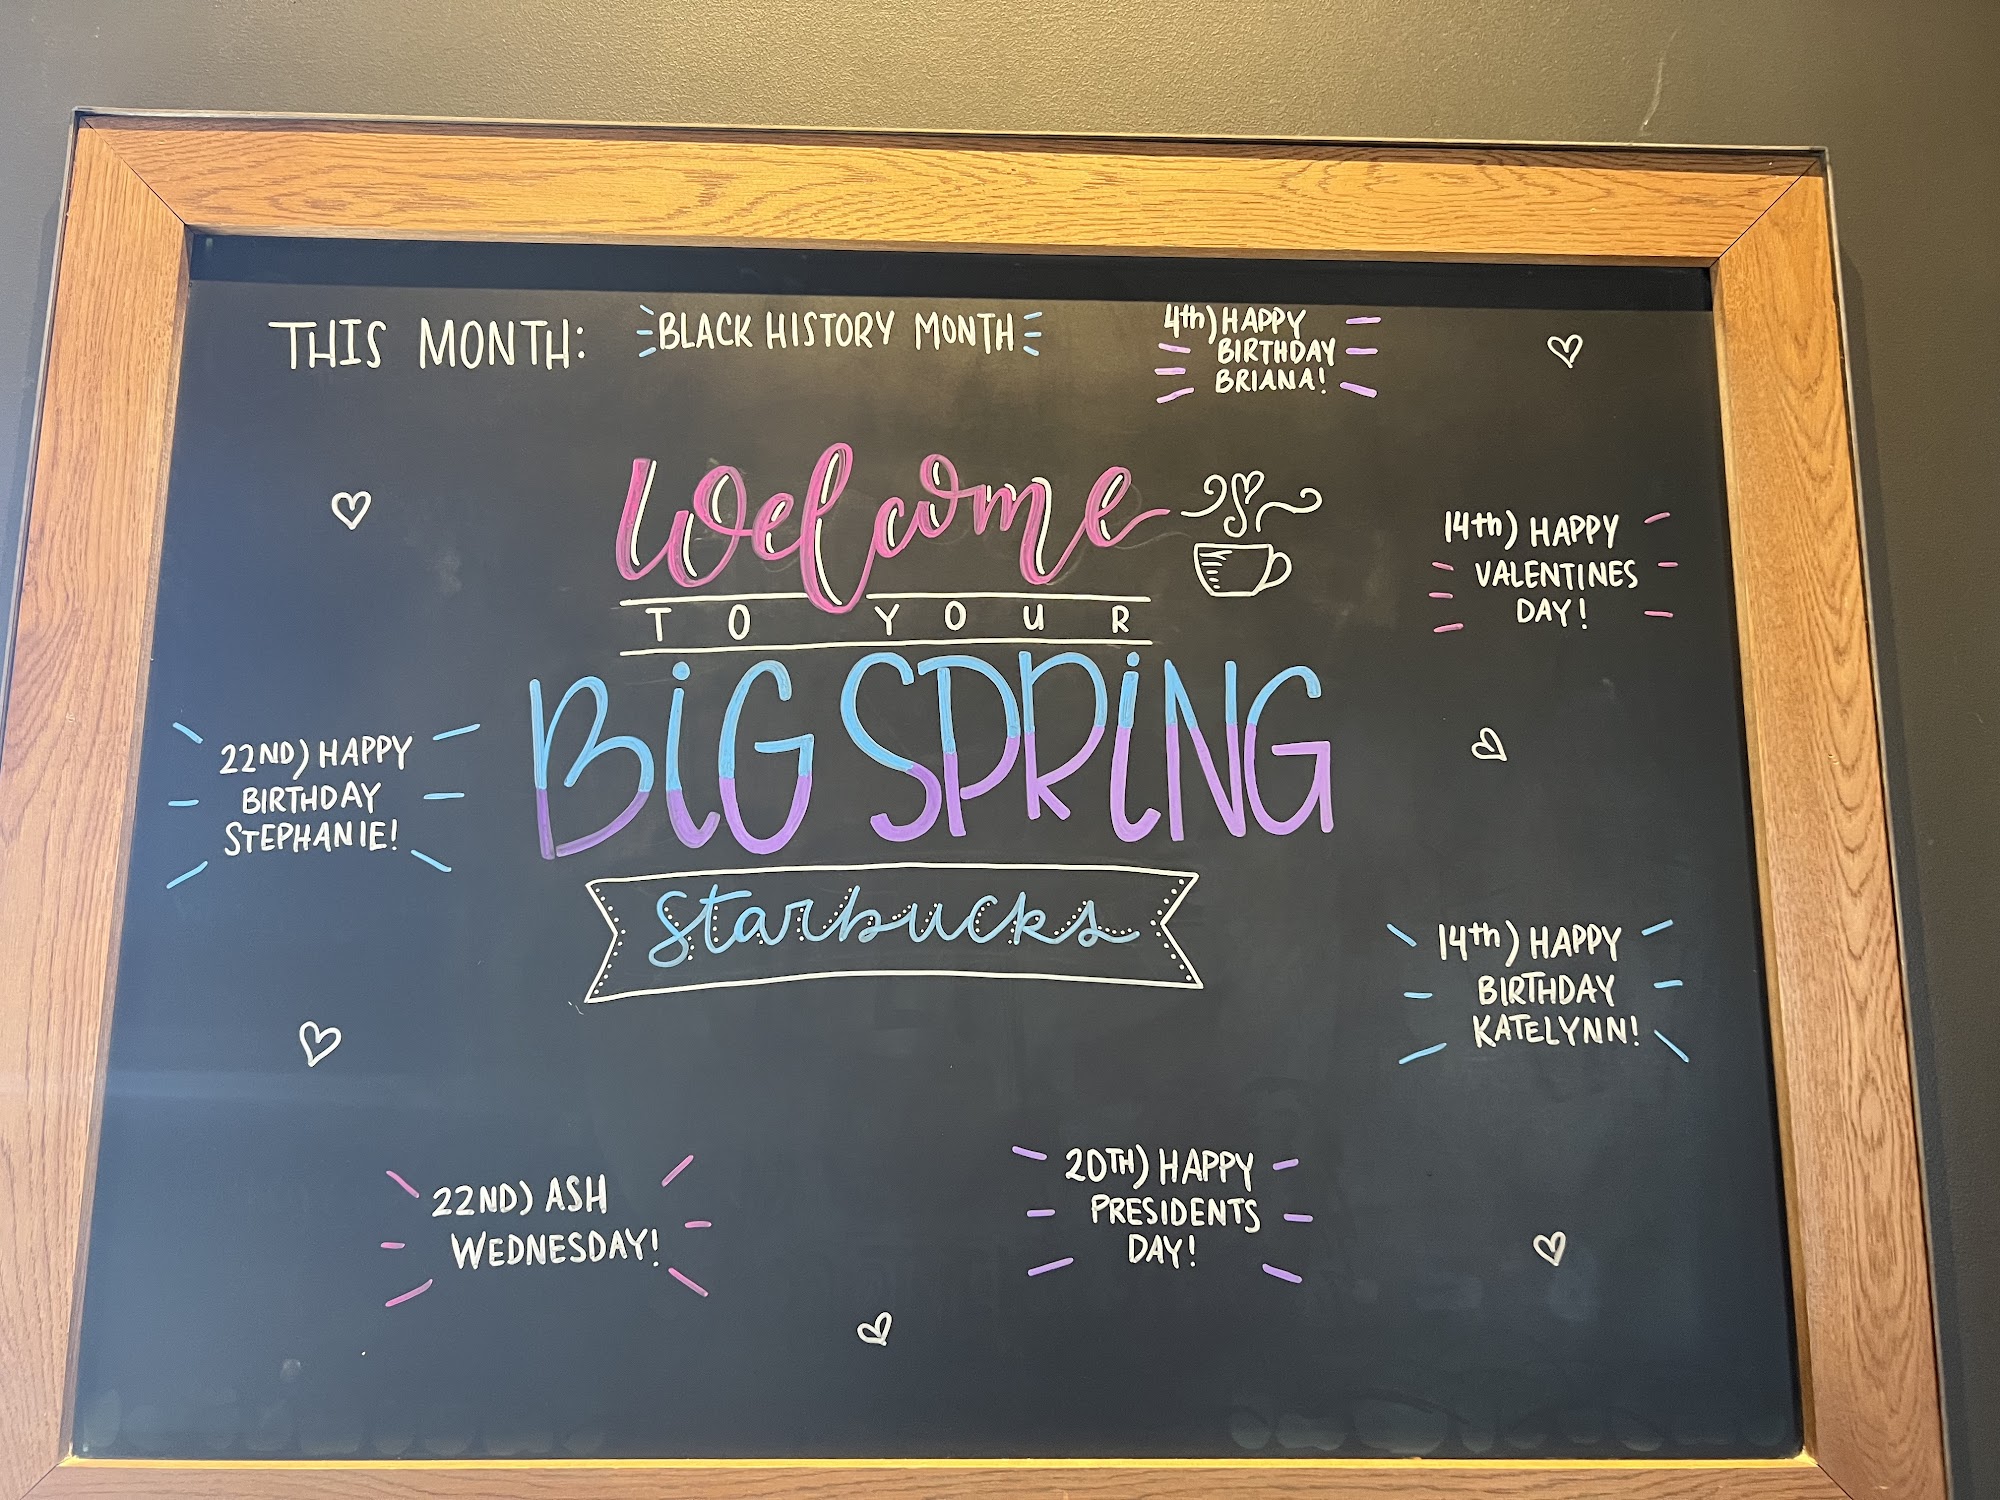 THIS MONTH:
BLACK HISTORY MONTH
4th) HAPPY
BIRTHDAY
BRIANA!
Welcome
TO YOUR
BiG SPRiNG
Starbucks
14th) HAPPY
VALENTINES
DAY!
14th) HAPPY
BIRTHDAY
KATELYNN!
20TH) HAPPY
PRESIDENTS
DAY!
22ND) ASH
WEDNESDAY!
22ND) HAPPY
BIRTHDAY
STEPHANIE!